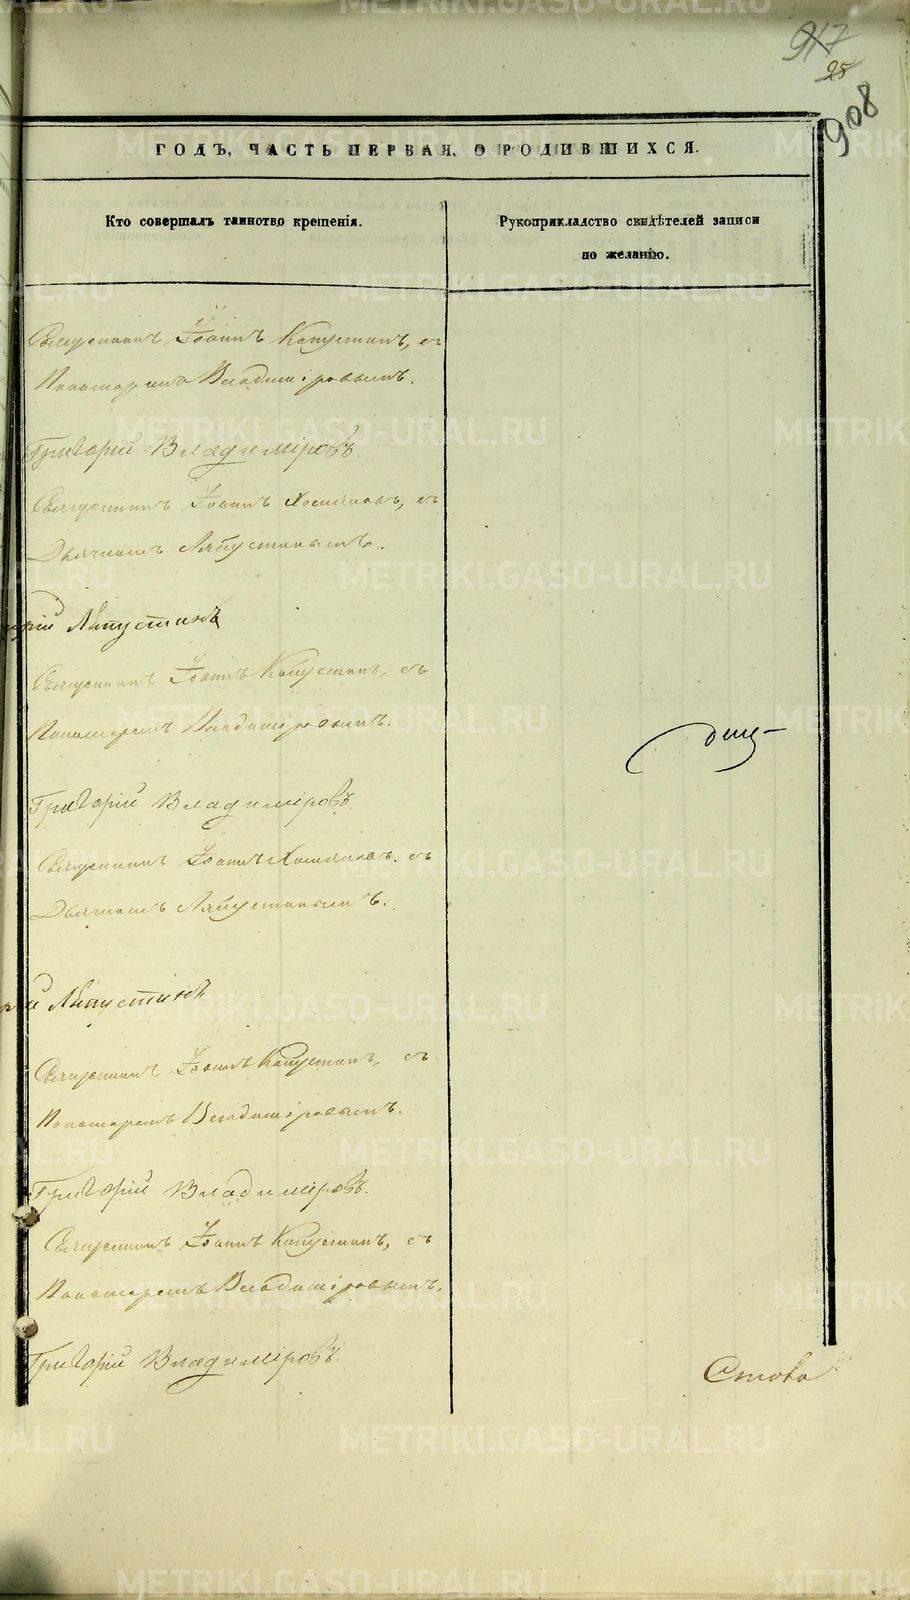 917
25
908
ГОДЪ, ЧАСТЬ ПЕРВАЯ, О РОДИВШИХСЯ.
Кто совершалъ таинство крещенія.
Рукоприкладство свидѣтелей записи
по желанію.
Священникъ Іоаннъ Капустинъ, съ
Пономаремъ Владиміровымъ.
Григорій Владиміровъ.
Священникъ Іоаннъ Хомяковъ, съ
Дьячкомъ Ляпустинымъ.
Ляпустинъ
Священникъ Іоаннъ Капустинъ, съ
Пономаремъ Владиміровымъ.
Григорій Владиміровъ.
Священникъ Іоаннъ Хомяковъ, съ
Дьячкомъ Ляпустинымъ.
Ляпустинъ
Священникъ Іоаннъ Капустинъ, съ
Пономаремъ Владиміровымъ.
Григорій Владиміровъ.
Священникъ Іоаннъ Капустинъ, съ
Пономаремъ Владиміровымъ.
Григорій Владиміровъ.
METRIKI.GASO-URAL.RU